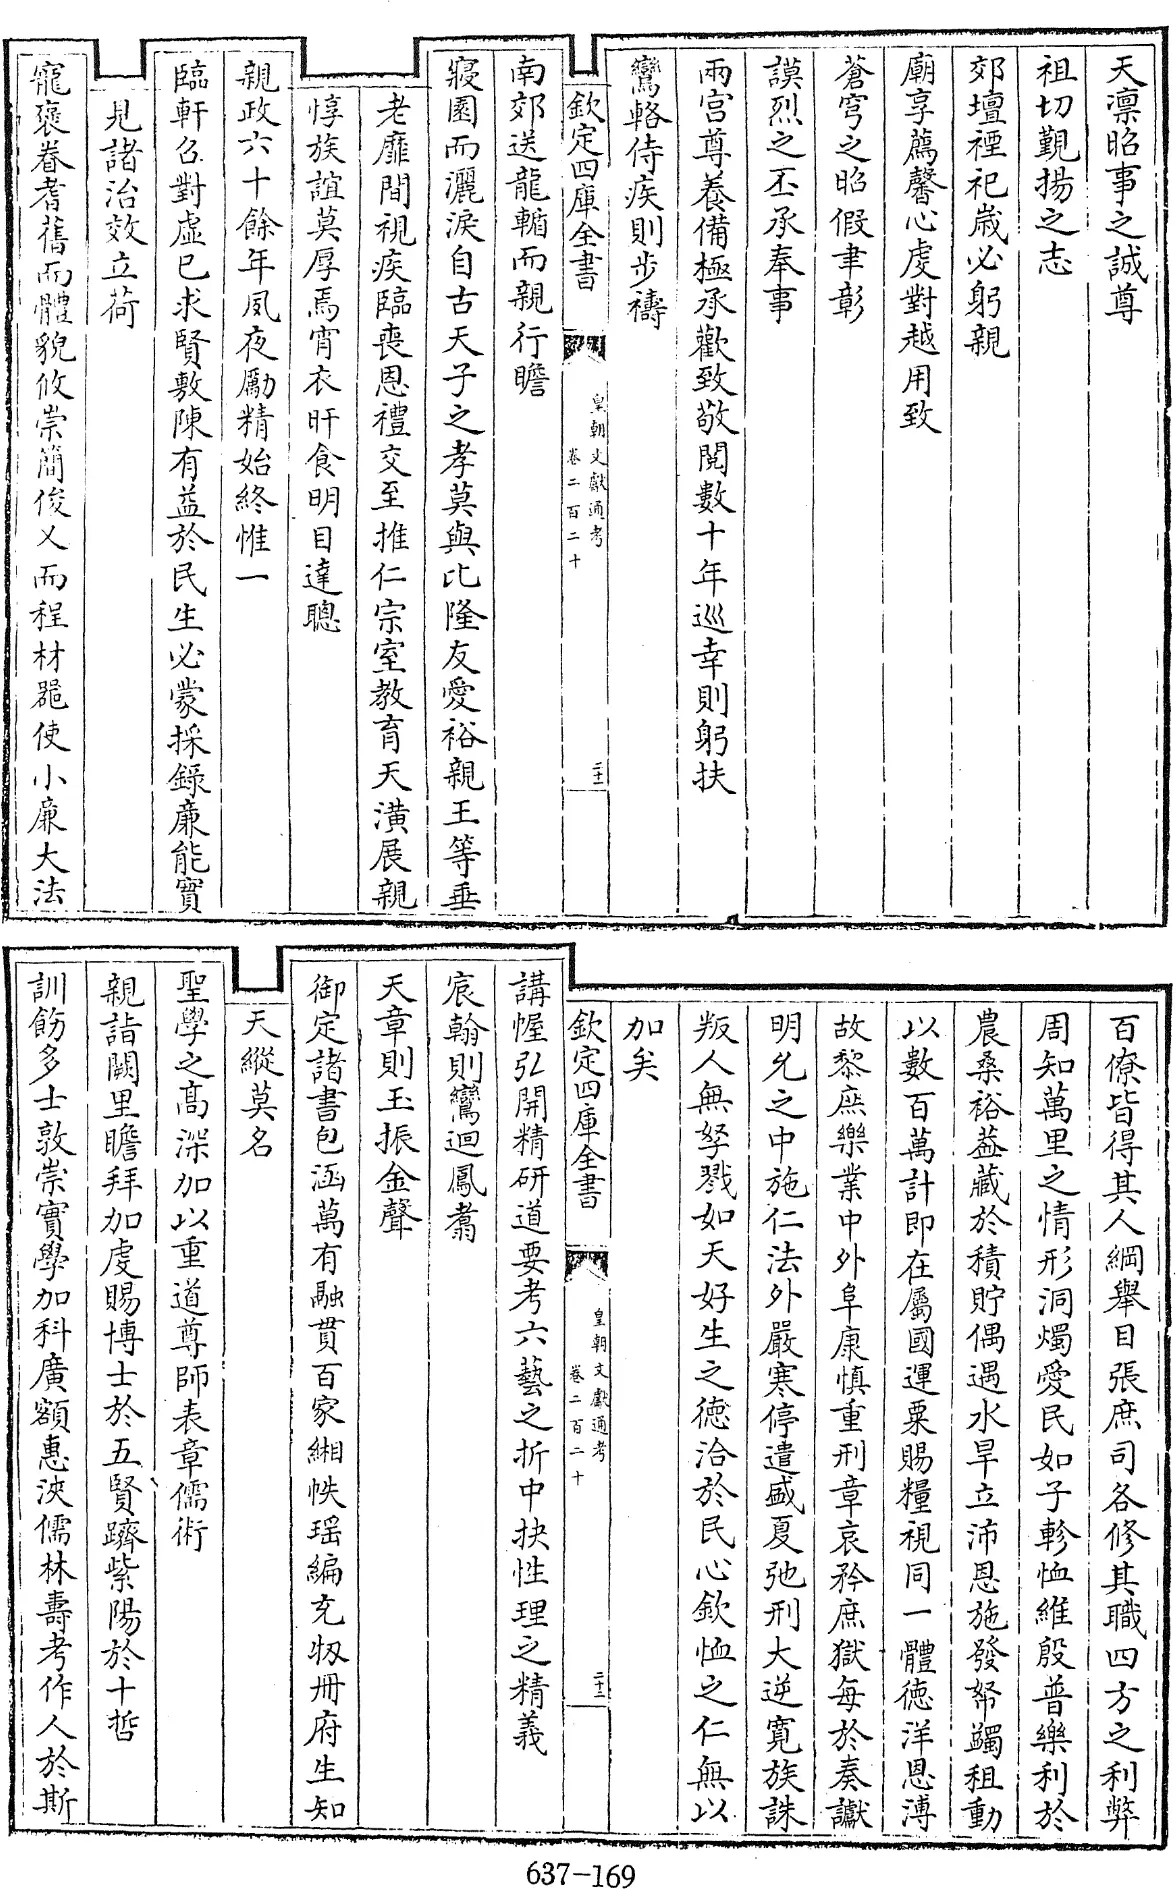 天凛昭事之誠尊
祖切覲揚之志
郊壇禋祀歳必躬親
廟享薦馨心虔對越用致
蒼穹之昭假聿彰
謨烈之丕承奉事
兩宫尊養備極承歡致敬閱數十年巡幸則躬扶
鸞輅侍疾則步禱
欽定四庫全書
皇朝文獻通考
卷二百二十
二十一
南郊送龍輴而親行瞻
寢園而灑淚自古天子之孝莫與比隆友愛裕親王等垂
老靡間視疾臨喪恩禮交至推仁宗室教育天潢展親
惇族誼莫厚焉宵衣旰食明目達聰
親政六十餘年夙夜勵精始終惟一
臨軒召對虛已求賢敷陳有益於民生必蒙採錄廉能實
見諸治效立荷
寵褒眷耆舊而體貌攸崇簡俊乂而程材器使小廉大法
百僚皆得其人綱舉目張庶司各修其職四方之利弊
周知萬里之情形洞燭愛民如子軫恤維殷普樂利於
農桑裕葢藏於積貯偶遇水旱立沛恩施發帑蠲租動
以數百萬計即在屬國運粟賜糧視同一體徳洋恩溥
故黎庶樂業中外阜康慎重刑章哀矜庶獄每於奏讞
明允之中施仁法外嚴寒停遣盛夏弛刑大逆寛族誅
叛人無孥戮如天好生之徳洽於民心欽恤之仁無以
加矣
欽定四庫全書
皇朝文獻通考
卷二百二十
二十二
講幄弘開精研道要考六藝之折中抉性理之精義
宸翰則鸞迴鳳翥
天章則玉振金聲
御定諸書包涵萬有融貫百家緗帙瑶編充牣冊府生知
天縱莫名
聖學之髙深加以重道尊師表章儒術
親詣闕里瞻拜加虔賜博士於五賢躋紫陽於十哲
訓飭多士敦崇實學加科廣額惠浹儒林壽考作人於斯
637-169